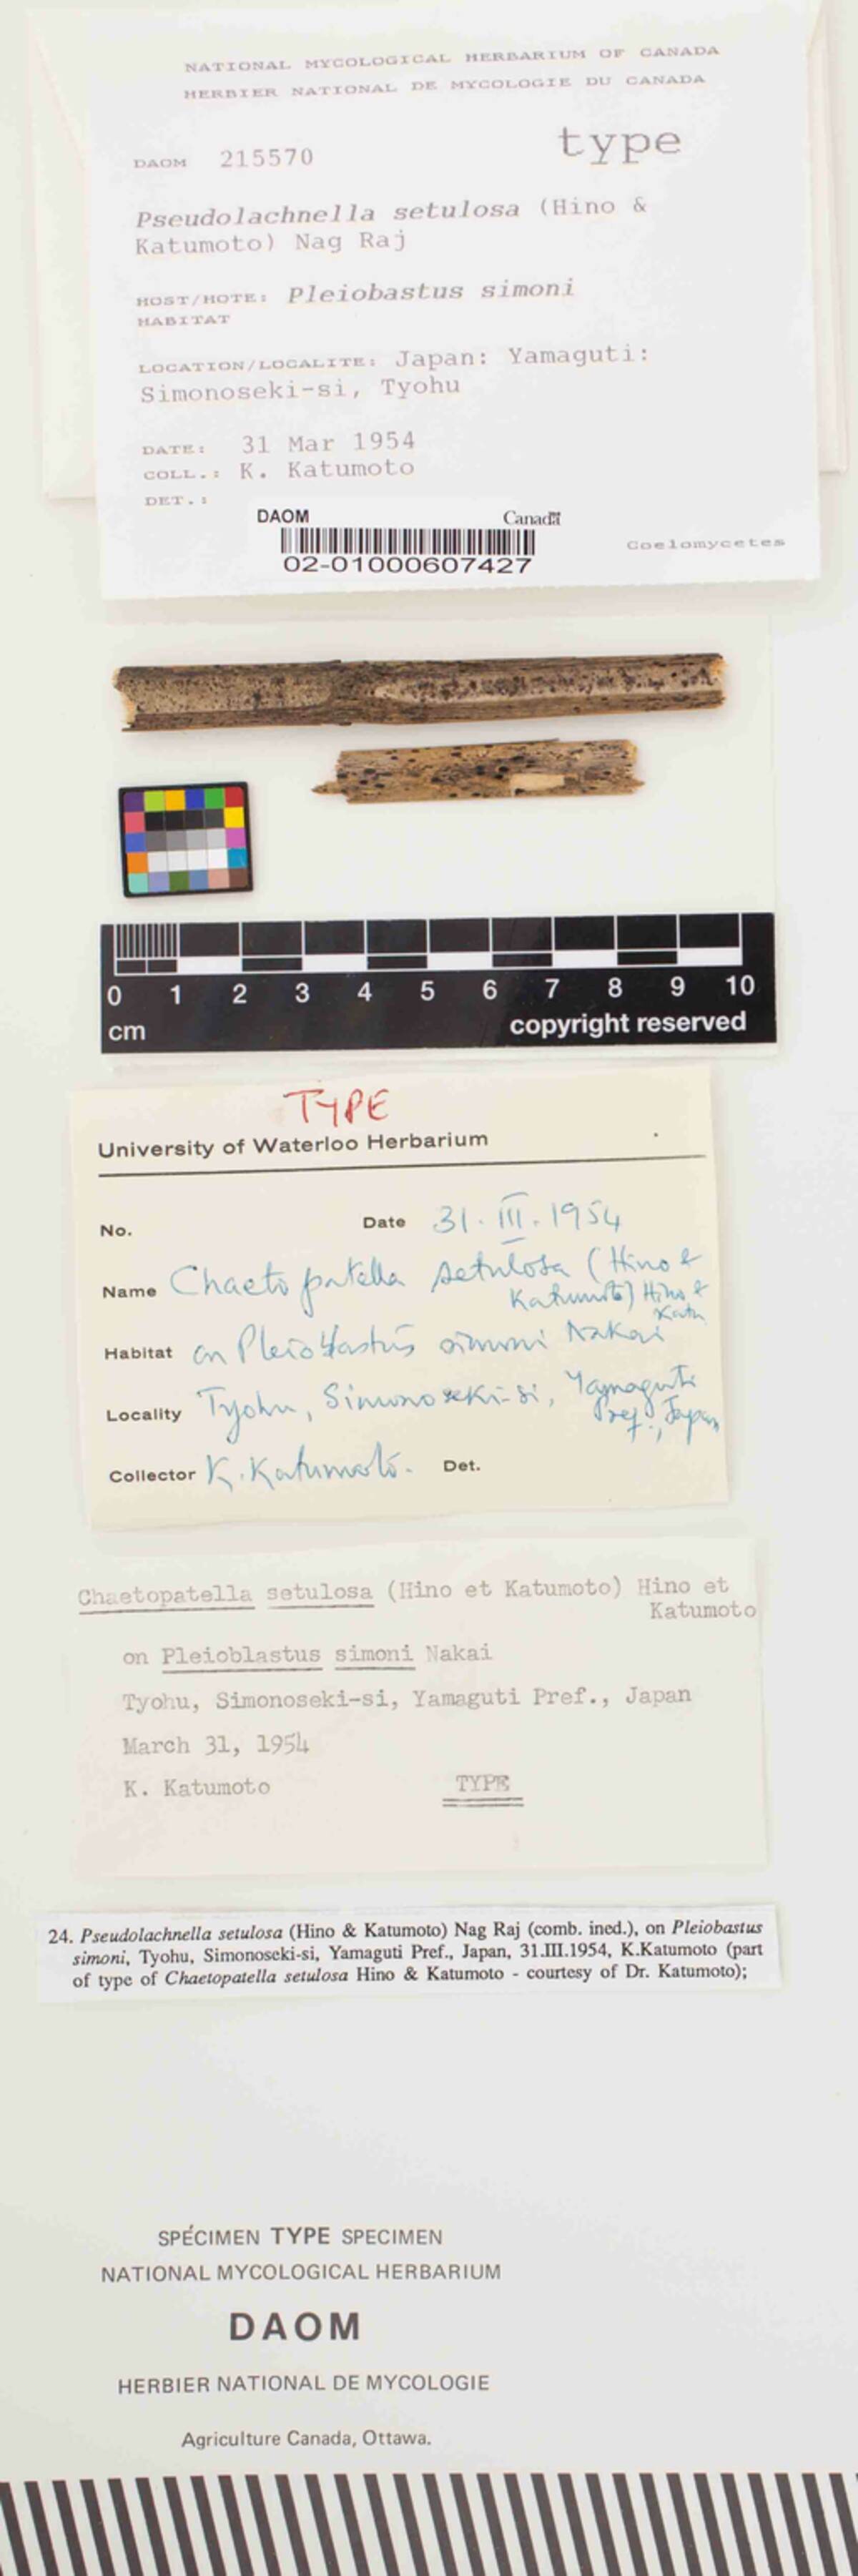 NATIONAL MYCOLOGICAL HERBARIUM OF CANADA
HERBIER NATIONAL DE MYCOLOGIE DU CANADA
type
DAOM 215570
Pseudolachnella setulosa (Hino &
Katumoto) Nag Raj
HOST/HOTE: Pleiobastus simoni
HABITAT
LOCATION/LOCALITE: Japan: Yamaguti:
Simonoseki-si, Tyohu
DATE: 31 Mar 1954
COLL.: K. Katumoto
DET.:
DAOM Canada
02-01000607427
Coelomycetes
0 1 2 3 4 5 6 7 8 9 10
cm copyright reserved
TYPE
University of Waterloo Herbarium
No. Date 31.III.1954
Name Chaetopatella setulosa (Hino &
Katumoto) Hino &
Katu
Habitat on Pleioblastus simoni Nakai
Locality Tyohu, Simonoseki-si, Yamaguti
Pref., Japan
Collector K. Katumoto. Det.
Chaetopatella setulosa (Hino et Katumoto) Hino et
Katumoto
on Pleioblastus simoni Nakai
Tyohu, Simonoseki-si, Yamaguti Pref., Japan
March 31, 1954
K. Katumoto TYPE
24. Pseudolachnella setulosa (Hino & Katumoto) Nag Raj (comb. ined.), on Pleiobastus
simoni, Tyohu, Simonoseki-si, Yamaguti Pref., Japan, 31.III.1954, K.Katumoto (part
of type of Chaetopatella setulosa Hino & Katumoto - courtesy of Dr. Katumoto);
SPÉCIMEN TYPE SPECIMEN
NATIONAL MYCOLOGICAL HERBARIUM
DAOM
HERBIER NATIONAL DE MYCOLOGIE
Agriculture Canada, Ottawa.